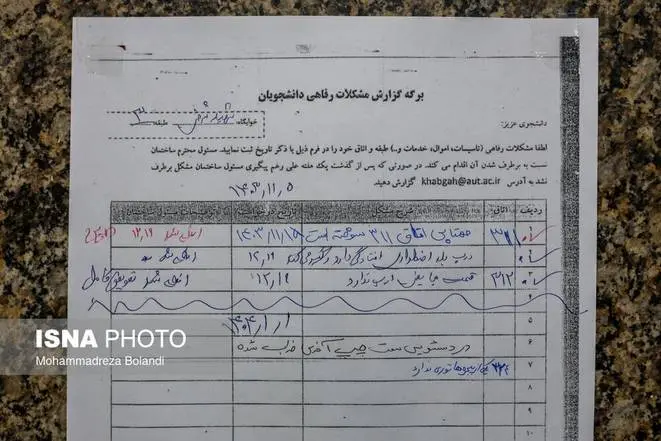 برگه گزارش مشکلات رفاهی دانشجویان
خوابگاه: شهید شرفی طبقه: ۳
دانشجوی عزیز:
لطفا مشکلات رفاهی (تاسیسات، اموال، خدمات و..) طبقه و اتاق خود را در فرم ذیل با ذکر تاریخ ثبت نمایید. مسئول محترم ساختمان
نسبت به برطرف شدن آن اقدام می کند. در صورتی که پس از گذشت یک هفته علی رغم پیگیری مسئول ساختمان مشکل برطرف
نشد به آدرس khabgah@aut.ac.ir گزارش دهید.
۱۴۰۳/۱۱/۵
ردیف اتاق شرح مشکل
۱ ۳۱۱ مهتابی اتاق ۳۱۱ سوخته است ۱۴۰۳/۱۱/۱۵ انجام شد ۱۲/۱۹
درب پله اضطراری افتادگی دارد و گیر می‌کند ۱۲/۱۹ انجام شد
۳ ۳۱۲ درب ندارد ۱۲/۱۹ انجام شد تعویض کامل
۴
۵ ۱۴۰۴/۱/۱
۶ در دستشویی سمت چپ آخری خراب شده
۷ توری ندارد
۸
۹
۱۰
ISNA PHOTO
Mohammadreza Bolandi